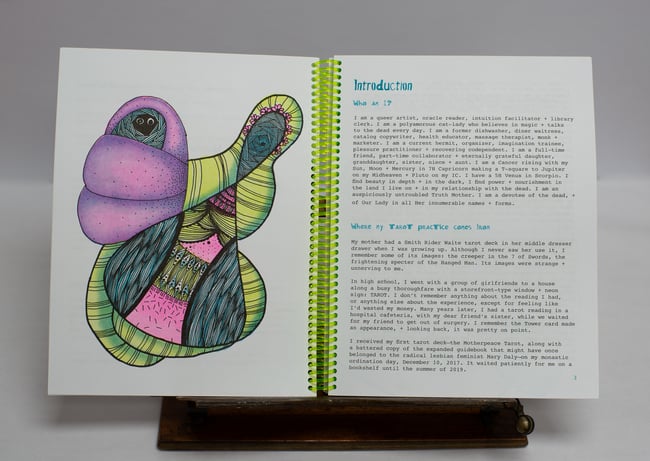 Introduction
Who am I?
I am a queer artist, oracle reader, intuition facilitator + library
clerk. I am a polyamorous cat-lady who believes in magic + talks
to the dead every day. I am a former dishwasher, diner waitress,
catalog copywriter, health educator, massage therapist, monk +
marketer. I am a current hermit, organizer, imagination trainee,
pleasure practitioner + recovering codependent. I am a full-time
friend, part-time collaborator + eternally grateful daughter,
granddaughter, sister, niece + aunt. I am a Cancer rising with my
Sun, Moon + Mercury in 7H Capricorn making a T-square to Jupiter
on my Midheaven + Pluto on my IC. I have a 5H Venus in Scorpio. I
find beauty in depth + in the dark. I find power + nourishment in
the land I live on + in my relationship with the dead. I am an
auspiciously untrusted Truth Mother. I am a devotee of the dead, +
of Our Lady in all Her innumerable names + forms.
Where my TAROT practice comes from
My mother had a Smith Rider Waite tarot deck in her middle dresser
drawer when I was growing up. Although I never saw her use it, I
remember some of its images: the creeper in the 7 of Swords, the
frightening specter of the Hanged Man. Its images were strange +
unnerving to me.
In high school, I went with a group of girlfriends to a house
along a busy thoroughfare with a storefront-type window + neon
sign: TAROT. I don't remember anything about the reading I had,
or anything else about the experience, except for feeling like
I'd wasted my money. Many years later, I had a tarot reading in a
hospital cafeteria, with my dear friend's sister, while we waited
for my friend to get out of surgery. I remember the Tower card made
an appearance, + looking back, it was pretty on point.
I received my first tarot deck—the Motherpeace Tarot, along with
a battered copy of the expanded guidebook that might have once
belonged to the radical lesbian feminist Mary Daly—on my monastic
ordination day, December 10, 2017. It waited patiently for me on a
bookshelf until the summer of 2019.